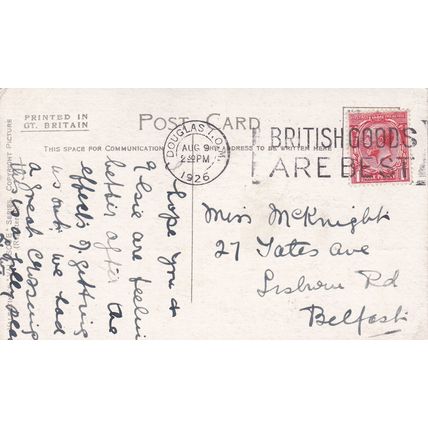 PRINTED IN
GT. BRITAIN
POST CARD
THIS SPACE FOR COMMUNICATION
ADDRESS TO BE WRITTEN HERE
DOUGLAS I.O.M.
AUG 9
PM
1926
BRITISH GOODS
ARE BEST
I hope you &
Elsie are feeling
better after the
effects of getting
us out, we had
a great crossing
this is a jolly
Miss McKnight
27 Yates Ave
Lisburn Rd
Belfast
COPYRIGHT PICTURE
SERIES